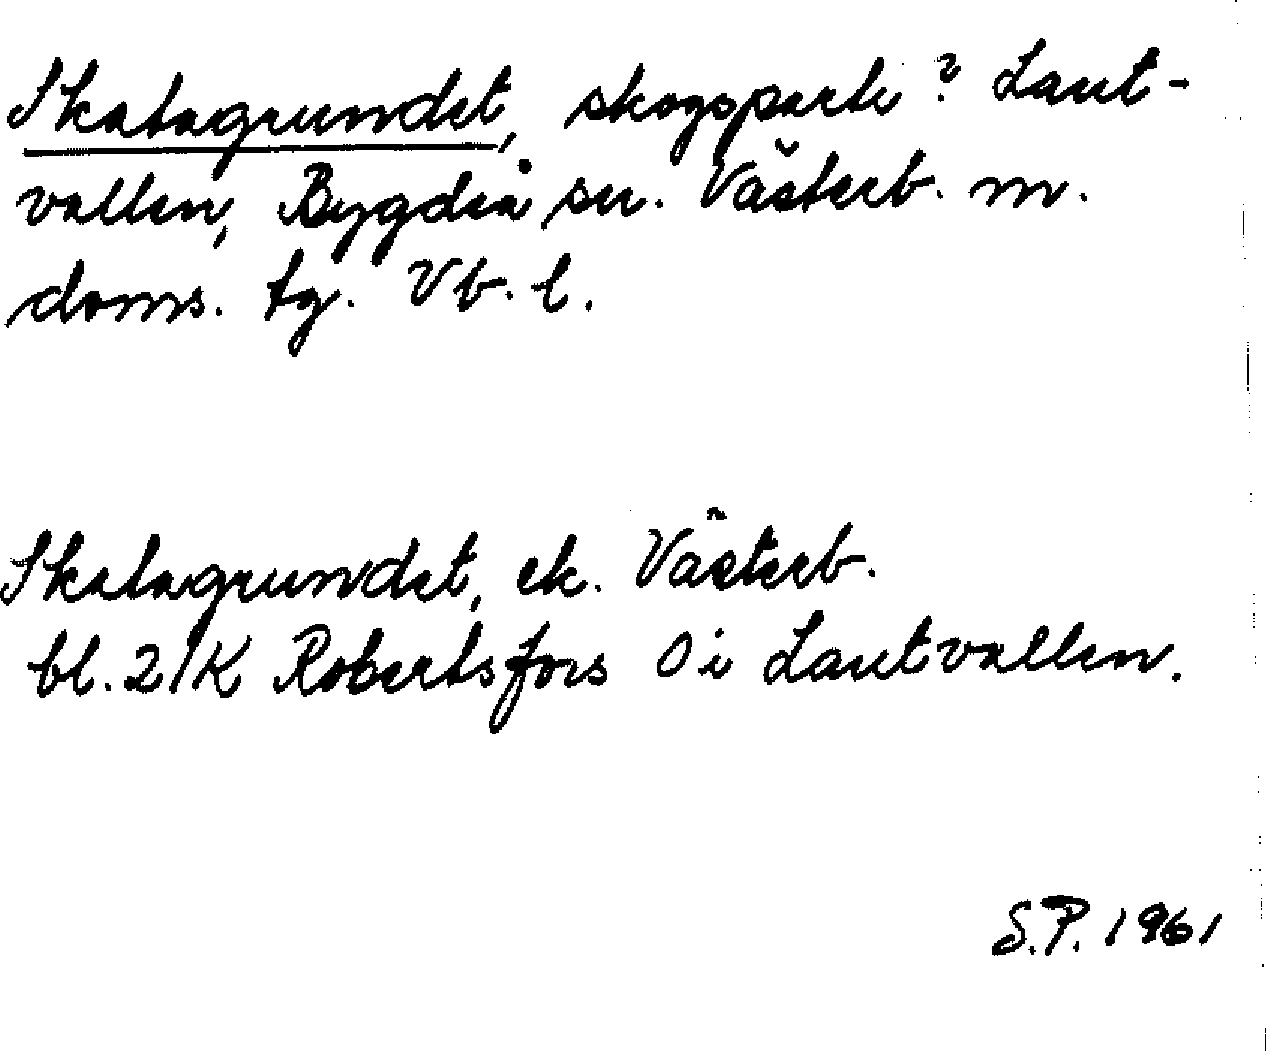 Skatagrundet, skogsparti? Laut-
vallen, Bygdeå sn. Västerb. m.
doms. tg. Vb. l.
Skatagrundet, ek. Västerb.
bl. 21K Robertsfors O i Lautvallen.
S.P. 1961